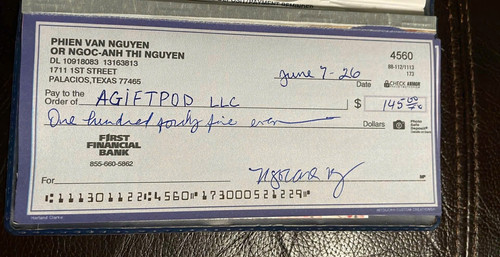 PHIEN VAN NGUYEN
OR NGOC-ANH THI NGUYEN
DL 10918083 13163813
1711 1ST STREET
PALACIOS, TEXAS 77465
4560
88-112/1113
173
June 7-26
Date
CHECK ARMOR
Pay to the
Order of AGIFTPOD LLC $ 145 00/00
One hundred fourty five even Dollars
Photo
Safe
Deposit
Details on back
FIRST
FINANCIAL
BANK
855-660-5862
For
MP
⑆111301122⑆4560⑈173000521229⑈
Harland Clarke